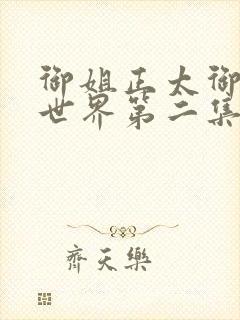 御姐正太御
世界第二集
齊天樂